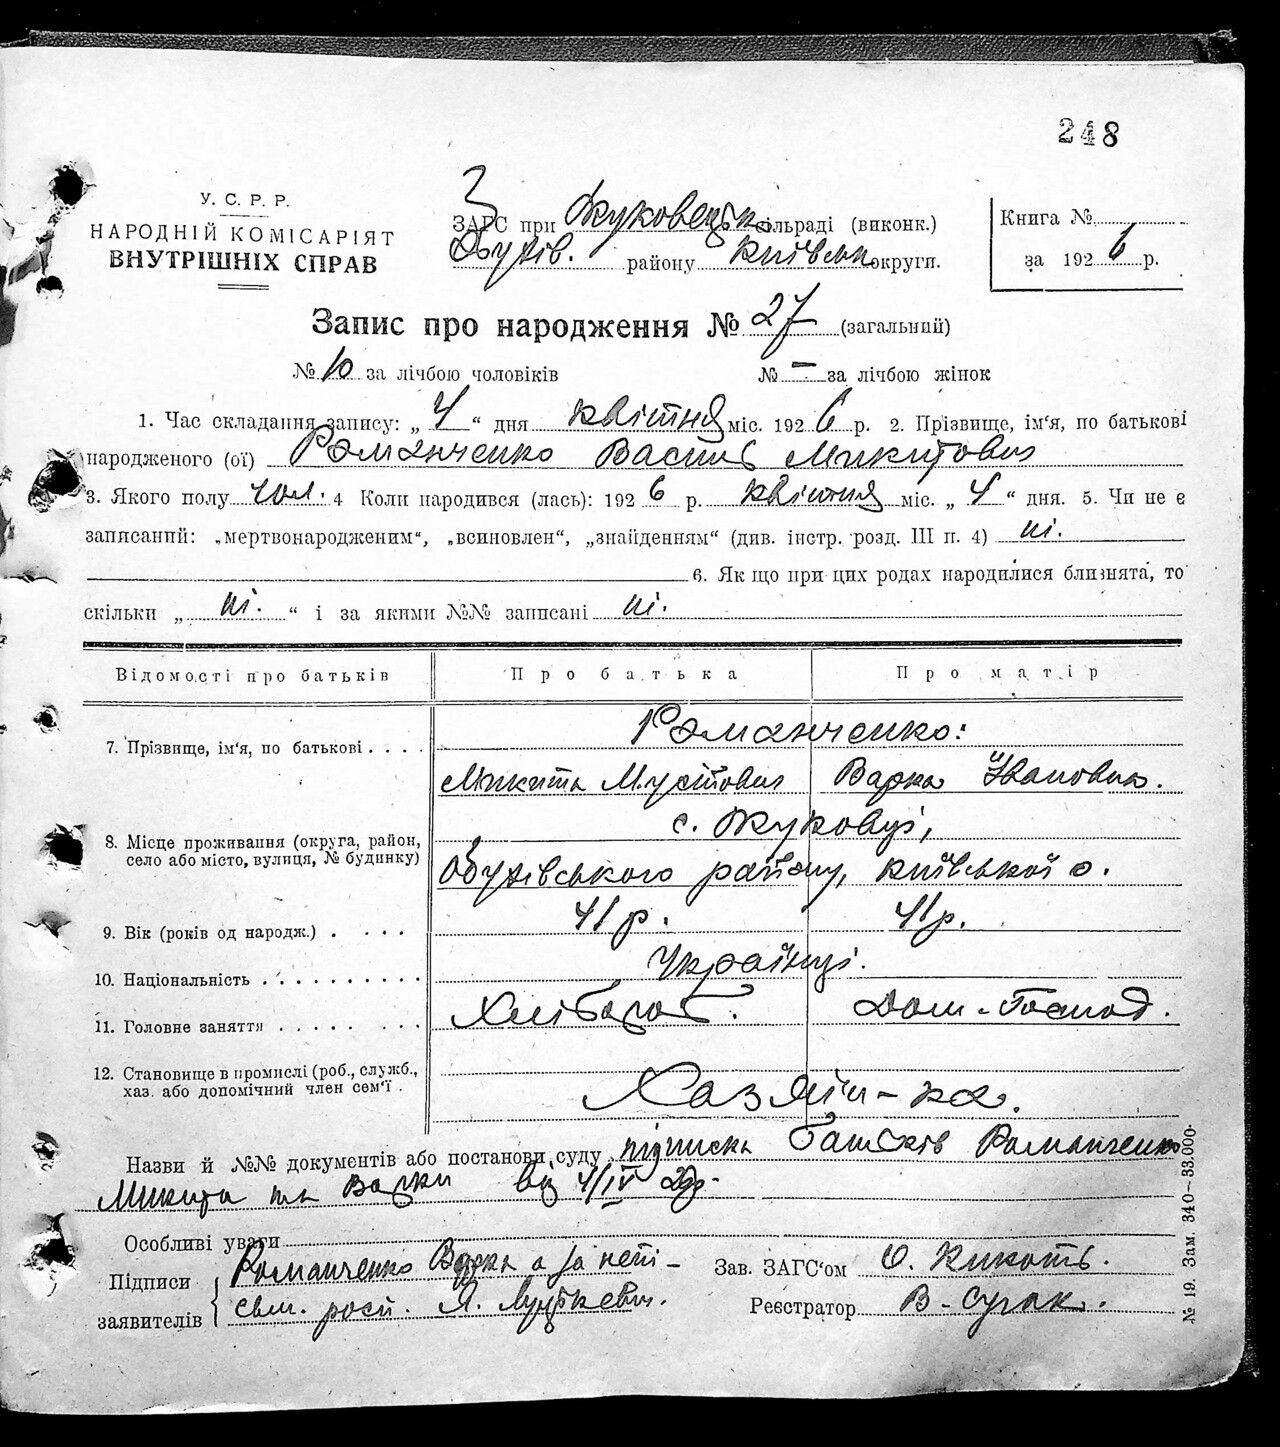 248
У. С. Р. Р.
НАРОДНІЙ КОМІСАРІЯТ
ВНУТРІШНІХ СПРАВ
З
ЗАГС при Жуковецьк. сільраді (виконк.)
Обухів. району Київськ округи.
Книга №
за 1926 р.
Запис про народження № 27 (загальний)
№ 10 за лічбою чоловіків № – за лічбою жінок
1. Час складання запису: „ 4 “ дня квітня міс. 1926 р. 2. Прізвище, ім'я, по батькові
народженого (ої) Романченко Василь Микитович
3. Якого полу чол. 4 Коли народився (лась): 1926 р. квітня міс. „ 4 “ дня. 5. Чи не є
записаний: „мертвонародженим“, „всиновлен“, „знайденням“ (див. інстр. розд. III п. 4) ні.
6. Як що при цих родах народилися близнята, то
скільки „ ні. “ і за якими №№ записані ні.
Відомості про батьків Про батька Про матір
7. Прізвище, ім'я, по батькові . . . . Романченко:
Микита Мусійович Варка Івановна.
8. Місце проживання (округа, район, село або місто, вулиця, № будинку) с. Жуковці,
Обухівського району, Київської о.
9. Вік (років од народж.) . . . . 41 р. 41 р.
10. Національність . . . . . . . . . . Українці.
11. Головне заняття . . . . . . . . Хлібороб. Дом-Господ.
12. Становище в промислі (роб., служб., хаз. або допомічний член сем'ї . Хазяїн-ка.
Назви й №№ документів або постанови суду підписка батьків Романченко
Микити та Варки від 4/IV 26р.
Особливі уваги
Підписи заявителів Романченко Варка а за непі-
сьм. росп. Л.
Зав. ЗАГС'ом О. Кикоть.
Реєстратор В. Сугак.
№ 19. Зам. 340–33.000.